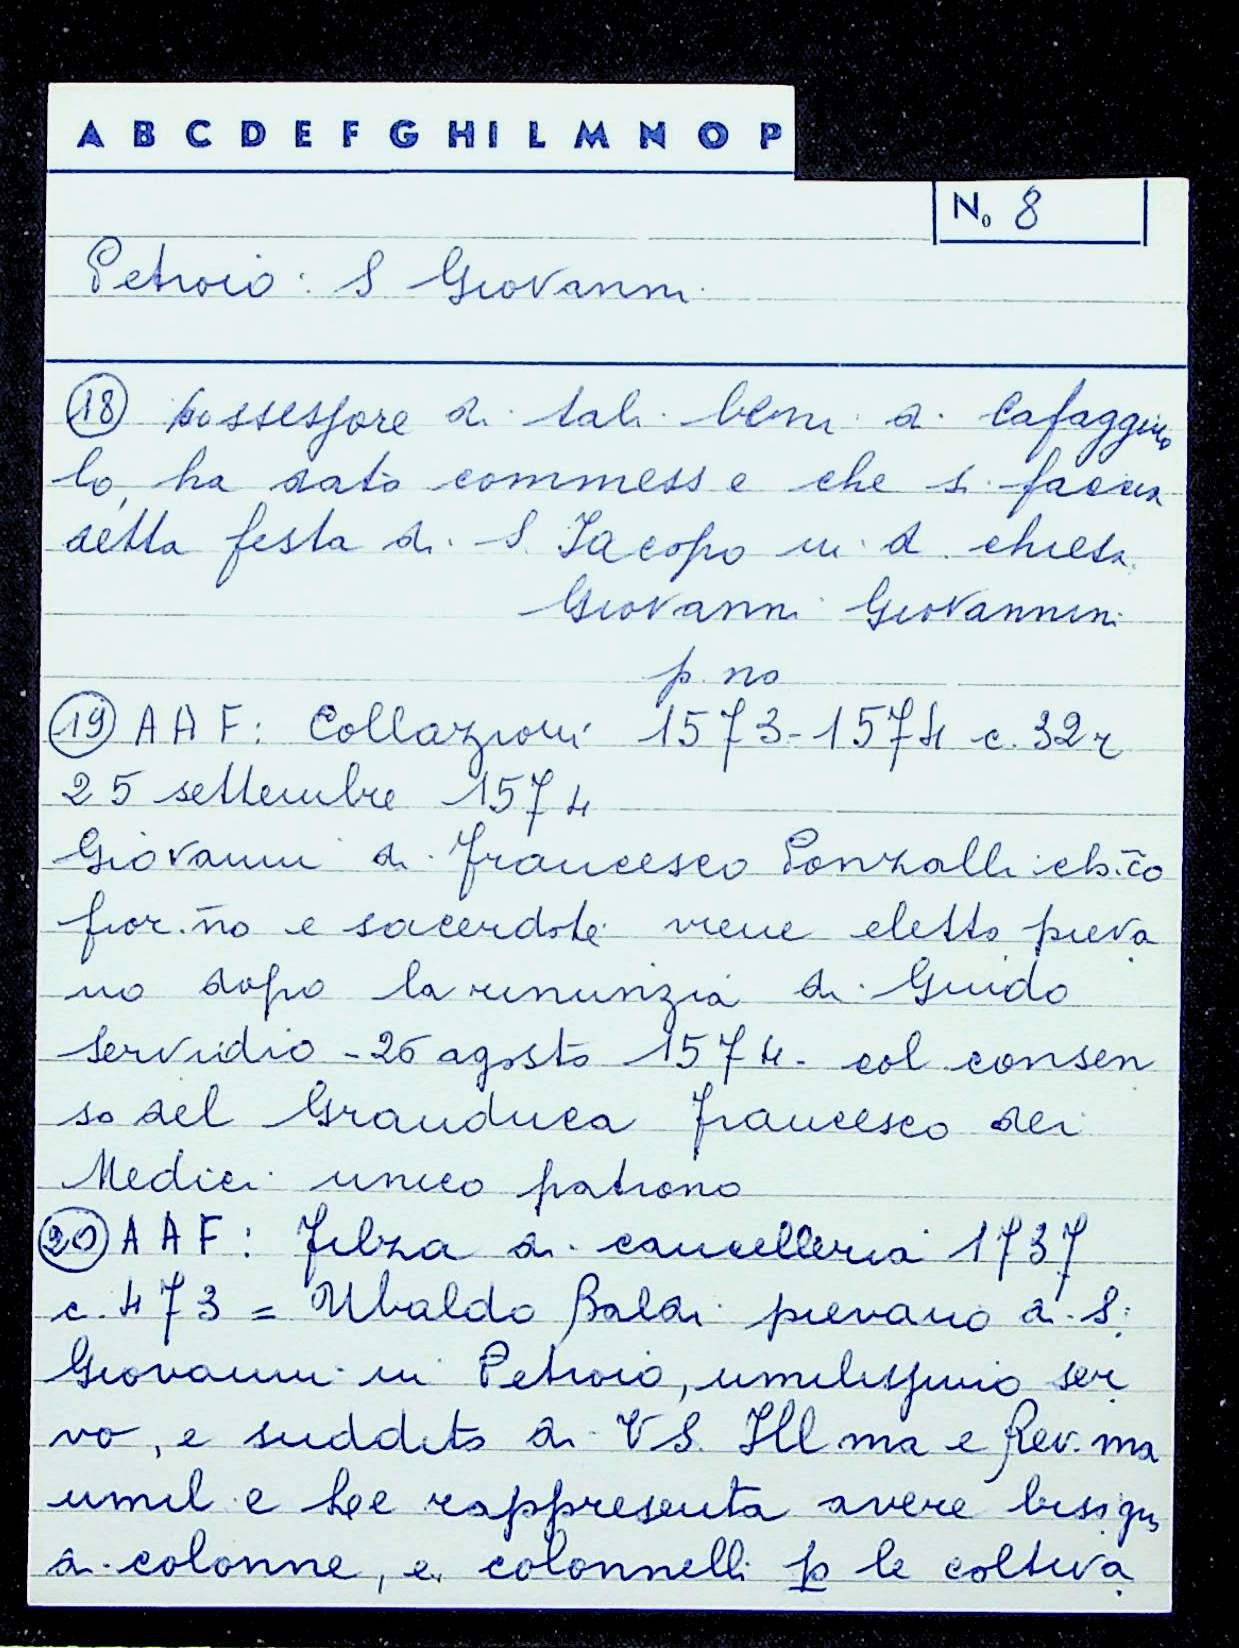 A B C D E F G H I L M N O P
No 8
Petroio: S Giovanni
18 possessore di tali beni di Cafaggiuo
lo, ha dato commesse che si faccia
detta festa di S. Jacopo in d. chiesa.
Giovanni Giovannini
p. no
19 A A F: Collazioni 1573-1574 c. 32r
25 settembre 1574
Giovanni di Francesco Ponzalli ch.co
fior.no e sacerdote viene eletto pieva
no dopo la rinunzia di Guido
Servidio - 26 agosto 1574 - col consen
so del Granduca Francesco dei
Medici unico patrono
20 A A F: Filza di cancelleria 1737
c. 473 = Ubaldo Baldi pievano di S.
Giovanni in Petroio, umilissimo ser
vo, e suddito di V S. Ill ma e Rev. ma
umil. e Lee rappresenta avere bisogno
di colonne, e colonnelli p le coltiva